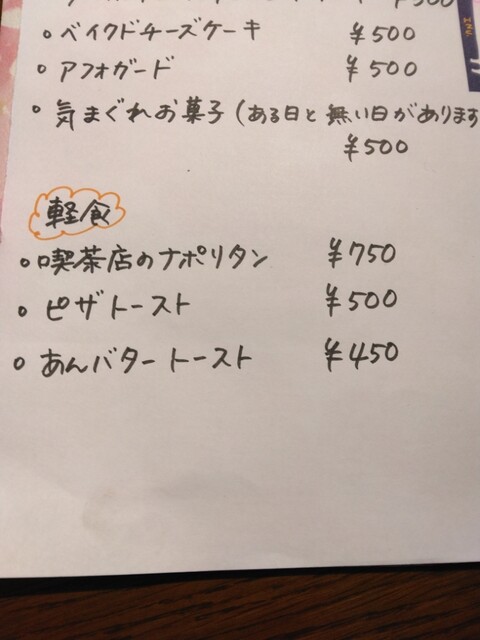 ○ ベイクドチーズケーキ ¥500
○ アフォガード ¥500
○ 気まぐれお菓子(ある日と無い日があります
¥500
軽食
○ 喫茶店のナポリタン ¥750
○ ピザトースト ¥500
○ あんバタートースト ¥450